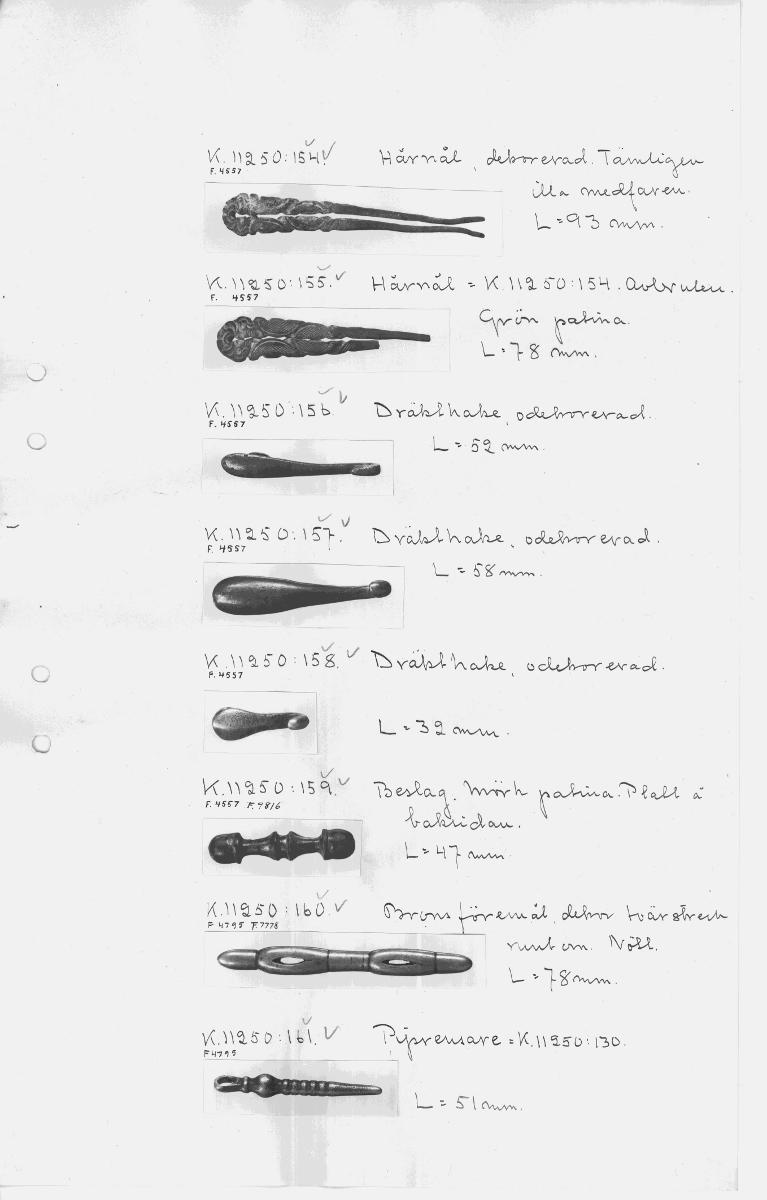 K.11250:154. Hårnål, dekorerad. Tämligen
F.4557
illa medfaren.
L=93 mm.
K.11250:155. Hårnål = K.11250:154. Avbruten.
F. 4557
Grön patina.
L=78 mm.
K.11250:156. Dräkthake, odekorerad.
F.4557
L=52 mm.
K.11250:157. Dräkthake, odekorerad.
F. 4557
L=58 mm.
K.11250:158. Dräkthake, odekorerad.
F.4557
L=32 mm.
K.11250:159. Beslag. Mörk patina. Platt å
F.4557 F.9816
baksidan.
L=47 mm.
K.11250:160. Bronsföremål, dekor tvärstreck
F 4795 F.7778
runt om. Nött.
L=78 mm.
K.11250:161. Piprensare = K.11250:130.
F4795
L=51 mm.